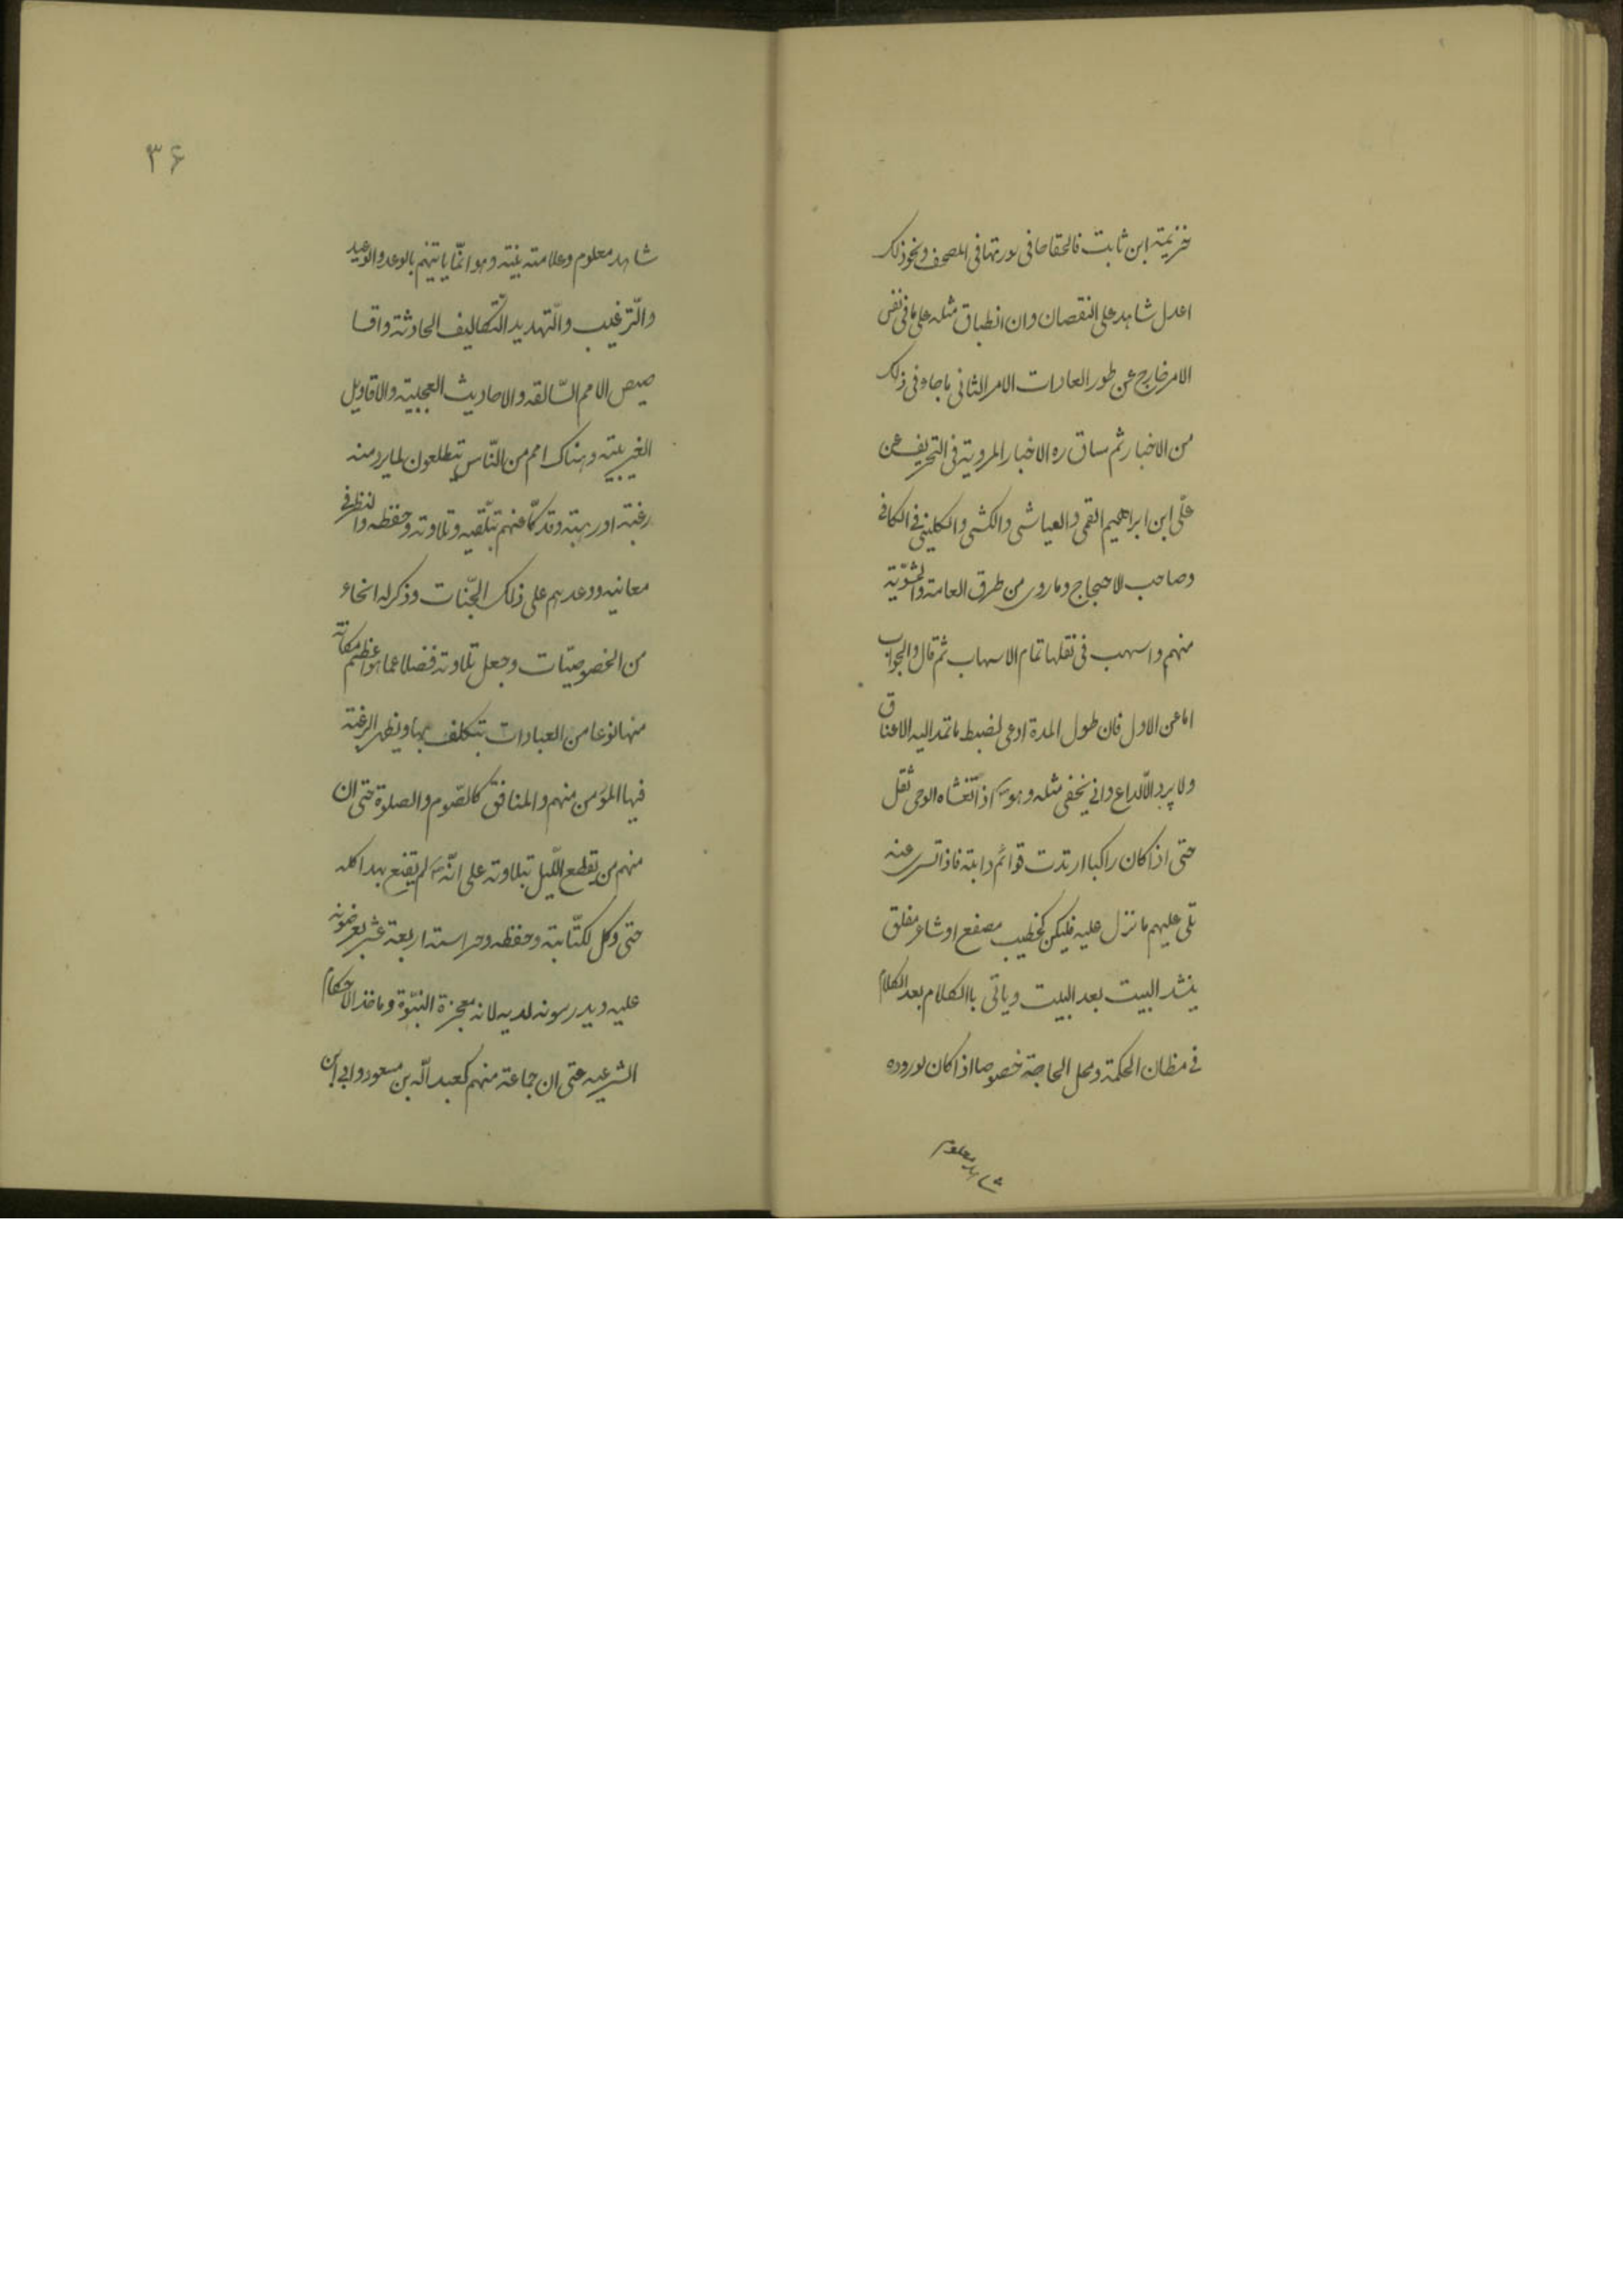 خزيمة ابن ثابت فالحقاها فى سورتها فى المصحف ونحو ذلك
اعدل شاهد على النقصان وان انطباق مثله على ما فى نفس
الامر خارج عن طور العادات الامر الثانى ما جاء فى ذلك
من الاخبار ثم ساق ره الاخبار المروية فى التحريف عن
علّى ابن ابراهيم القمى والعياشى والكشى والكلينى فى الكافى
وصاحب الاحتجاج وما روى من طرق العامة والحشوّية
منهم واسهب فى نقلها تمام الاسهاب ثم قال والجواب
اما عن الاول فان طول المدة ادعى لضبط ما تمتد اليه الاعناق
ولا يرد الّا لداع وانى يخفى مثله وهو ص اذا تغشاه الوحى ثقل
حتى اذا كان راكبا ارتدت قوائم دابته فاذا تسرى عنه
تلى عليهم ما نزل عليه فليكن كخطيب مصقع او شاعر مفلق
ينشد البيت بعد البيت وياتى باالكلام بعد الكلام
فى مظان الحكمة ومحل الحاجة خصوصا اذا كان لوروده
شاهد معلوم
٣۶
شاهد معلوم وعلامته بينة وهو انمّا ياتيهم بالوعد والوعيد
والتّرغيب والتّهديد التّكاليف الحادثة واقا
صيص الامم السّالفه والاحاديث العجيبة والاقاويل
الغريبة وهناك امم من النّاس يتطلعون لما يرد منه
رغبته او رهبته وقد كلّا منهم بتلّقيه وتلاوته وحفظه والنظر فى
معانيه ووعدهم على ذلك الجّنات وذكر له انحاء
من الخصوصيّات وجعل تلاوته فضلا عما هو اعظم مكانة
منها نوعا من العبادات يتكلف بها ويظهر الرغبة
فيها المؤمن منهم والمنافق كالصّوم والصلوة حتى ان
منهم من يقطع اللّيل بتلاوته على انّه ص لم يقنع بهذا كله
حتى وكل لكتّابته وحفظه وحراسته اربعة عشر يعرضونه
عليه ويدرسونه لديه لانه معجزة النبّوة وماخذ الاحكام
الشرعيه حتى ان جماعة منهم كعبد اللّه بن مسعود وابى ابن